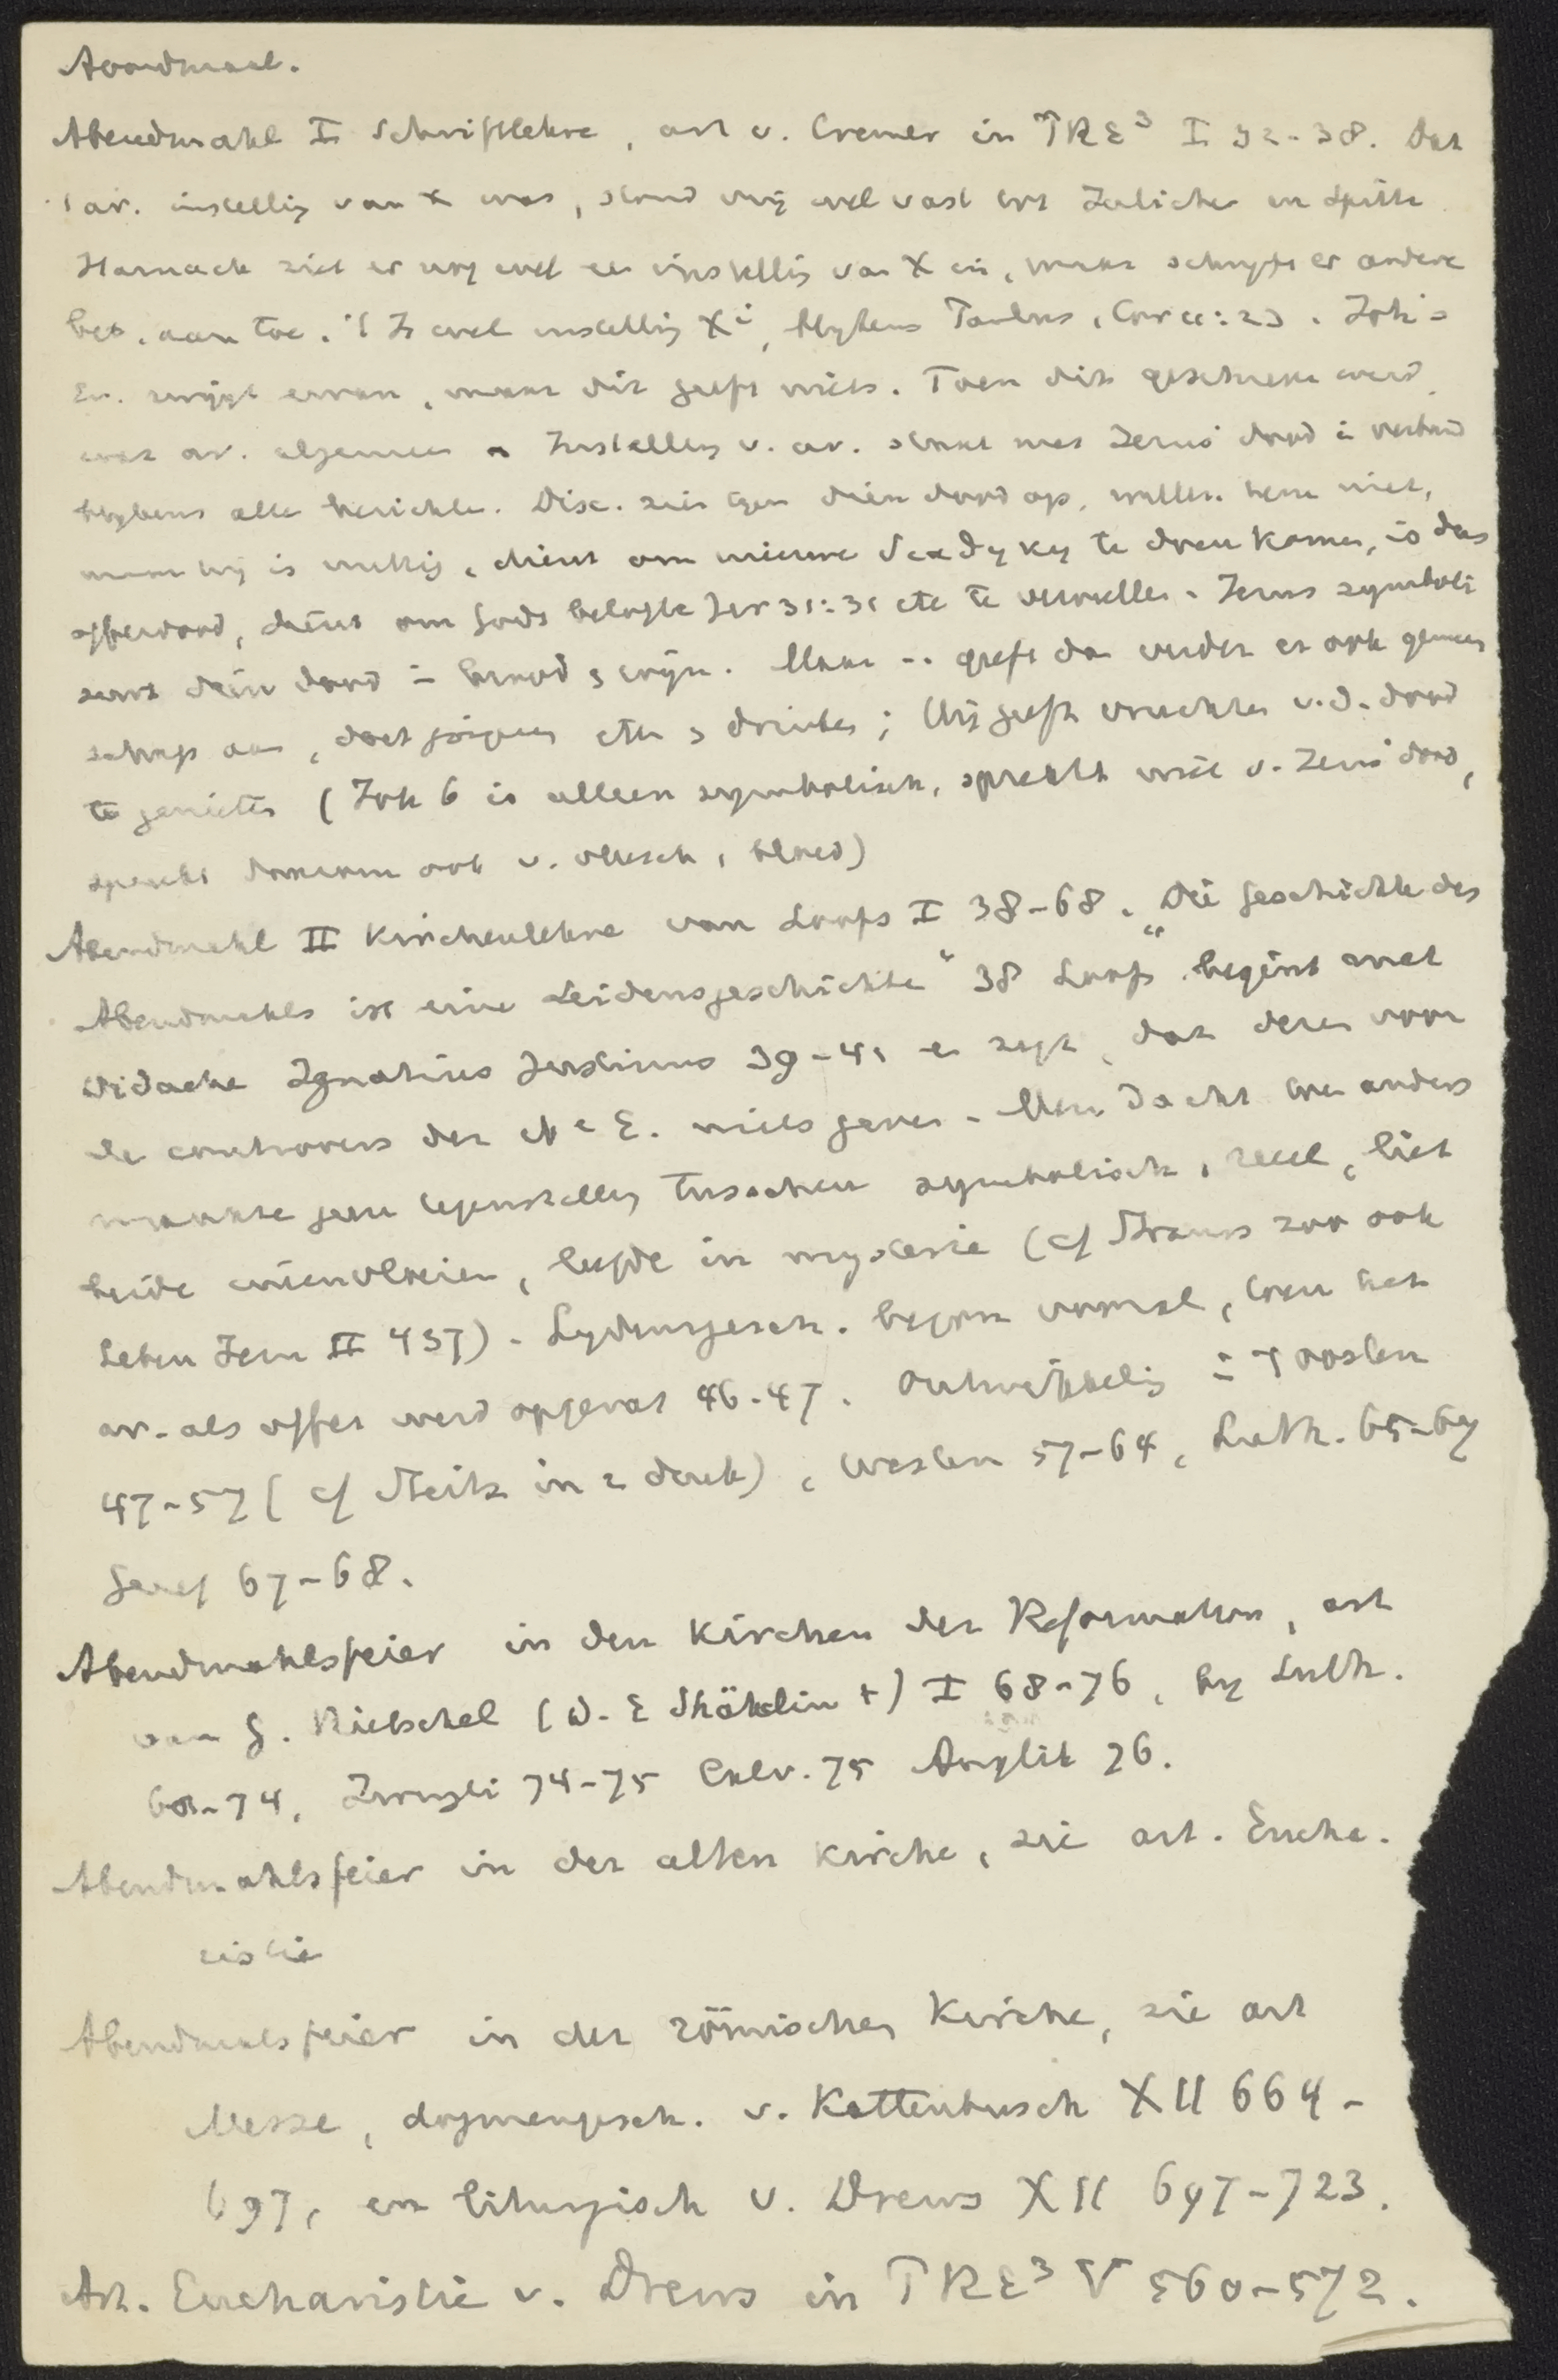 Avondmaal.
Abendmahl I Schriftlehre, art v. Cremer in TRE³ I 32-38. Dat
't av. instelling van X was, stond vrij wel vast tot Jülicher en Spitta
Harnack ziet er nog wel een instelling van X in, maar schrijft er andere
bet. aan toe. 't Is wel instelling Xi, blijkens Paulus, 1 Cor 11:23. Joh's
Ev. zwijgt ervan, maar dit geeft niets. Toen dit geschreven werd
was av. algemeen. Instelling v. av. staat met Jezus' dood in verband
blijkens alle berichten. Disc. zien tegen dien dood op, willen hem niet,
maar hij is nuttig, dient om nieuwe διαθηκη te doen komen, is dus
offerdood, dient om Gods belofte Jer 31:31 etc te vervullen. Jezus symboli
seert dien dood in brood en wijn. Maar .. geeft dan verder er ook gemeen
schap aan, doet jongeren eten en drinken; Hij geeft vruchten v.d. dood
te genieten (Joh 6 is alleen symbolisch, spreekt niet v. Jezus' dood,
spreekt daarom ook v. vleesch, bloed)
Abendmahl II Kirchenlehre van Loofs I 38-68. „Die Geschichte des
Abendmahls ist eine Leidensgeschichte“ 38 Loofs begint met
Didache Ignatius Justinus 39-41 en zegt, dat deze voor
de controvers der 16e E. niets geven. Men dacht toen anders
maakte geen tegenstelling tusschen symbolisch, reeel, liet
beide ineenvloeien, leefde in mysterie (cf Strauss zoo ook
Leben Jesu II 437). Lydensgesch. begon vooral, toen het
av. als offer werd opgevat 46-47. Ontwikkeling in 't oosten
47-57 (cf Steitz in z doeck), westen 57-64, Luth. 65-67
Geref 67-68.
Abendmahlsfeier in den Kirchen der Reformation, art
van G. Rietschel (D. E Stähelin †) I 68-76, by Luth.
68-74, Zwingli 74-75 Calv. 75 Anglik 76.
Abendmahlsfeier in der alten Kirche, zie art. Eucha.
ristie
Abendmahlsfeier in der römischen Kirche, zie art
Messe, dogmengesch. v. Kattenbusch XII 664-
697, en liturgisch v. Drews XII 697-723.
Art. Eucharistie v. Drews in TRE³ V 560-572.